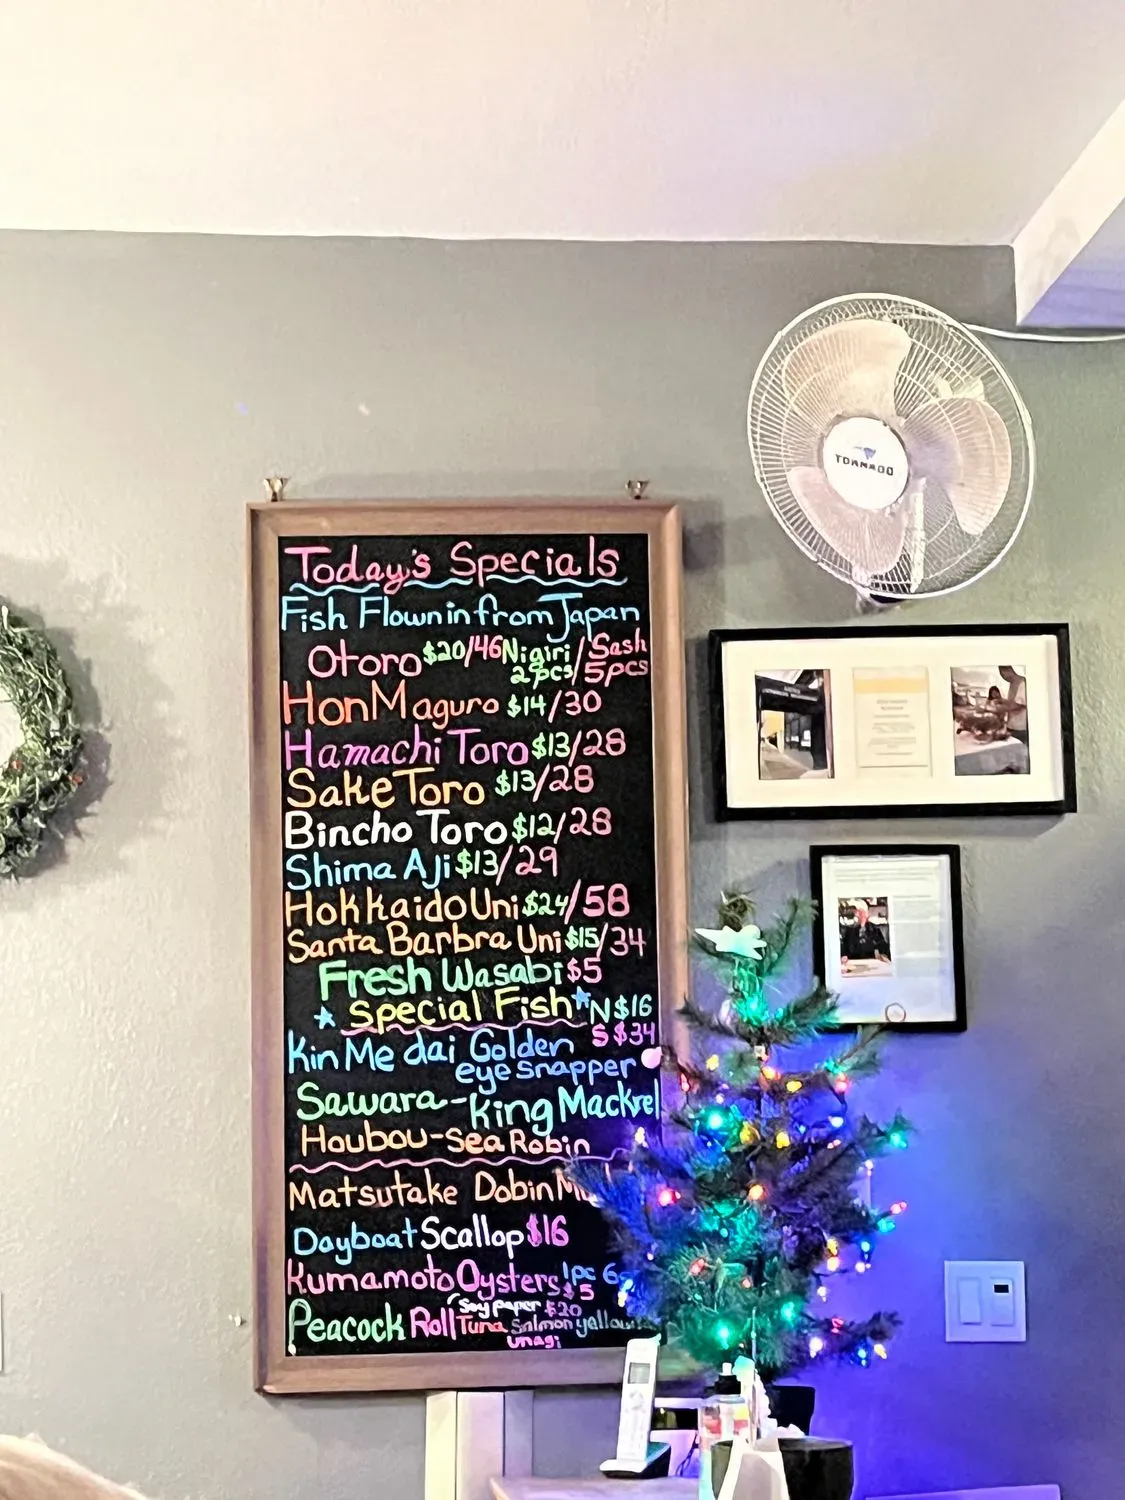 TORNADO
Today's Specials
Fish Flown in from Japan
Otoro $20/46 Nigiri 2pcs/Sash 5pcs
Hon Maguro $14/30
Hamachi Toro $13/28
Sake Toro $13/28
Bincho Toro $12/28
Shima Aji $13/29
Hokkaido Uni $24/58
Santa Barbra Uni $15/34
Fresh Wasabi $5
Special Fish N $16
S $34
Kin Me dai Golden
eye snapper
Sawara-King Mackrel
Houbou-Sea Robin
Matsutake Dobin
Dayboat Scallop $16
Kumamoto Oysters 1pc $5
Peacock Roll Soy paper $20
Tuna Salmon
unagi